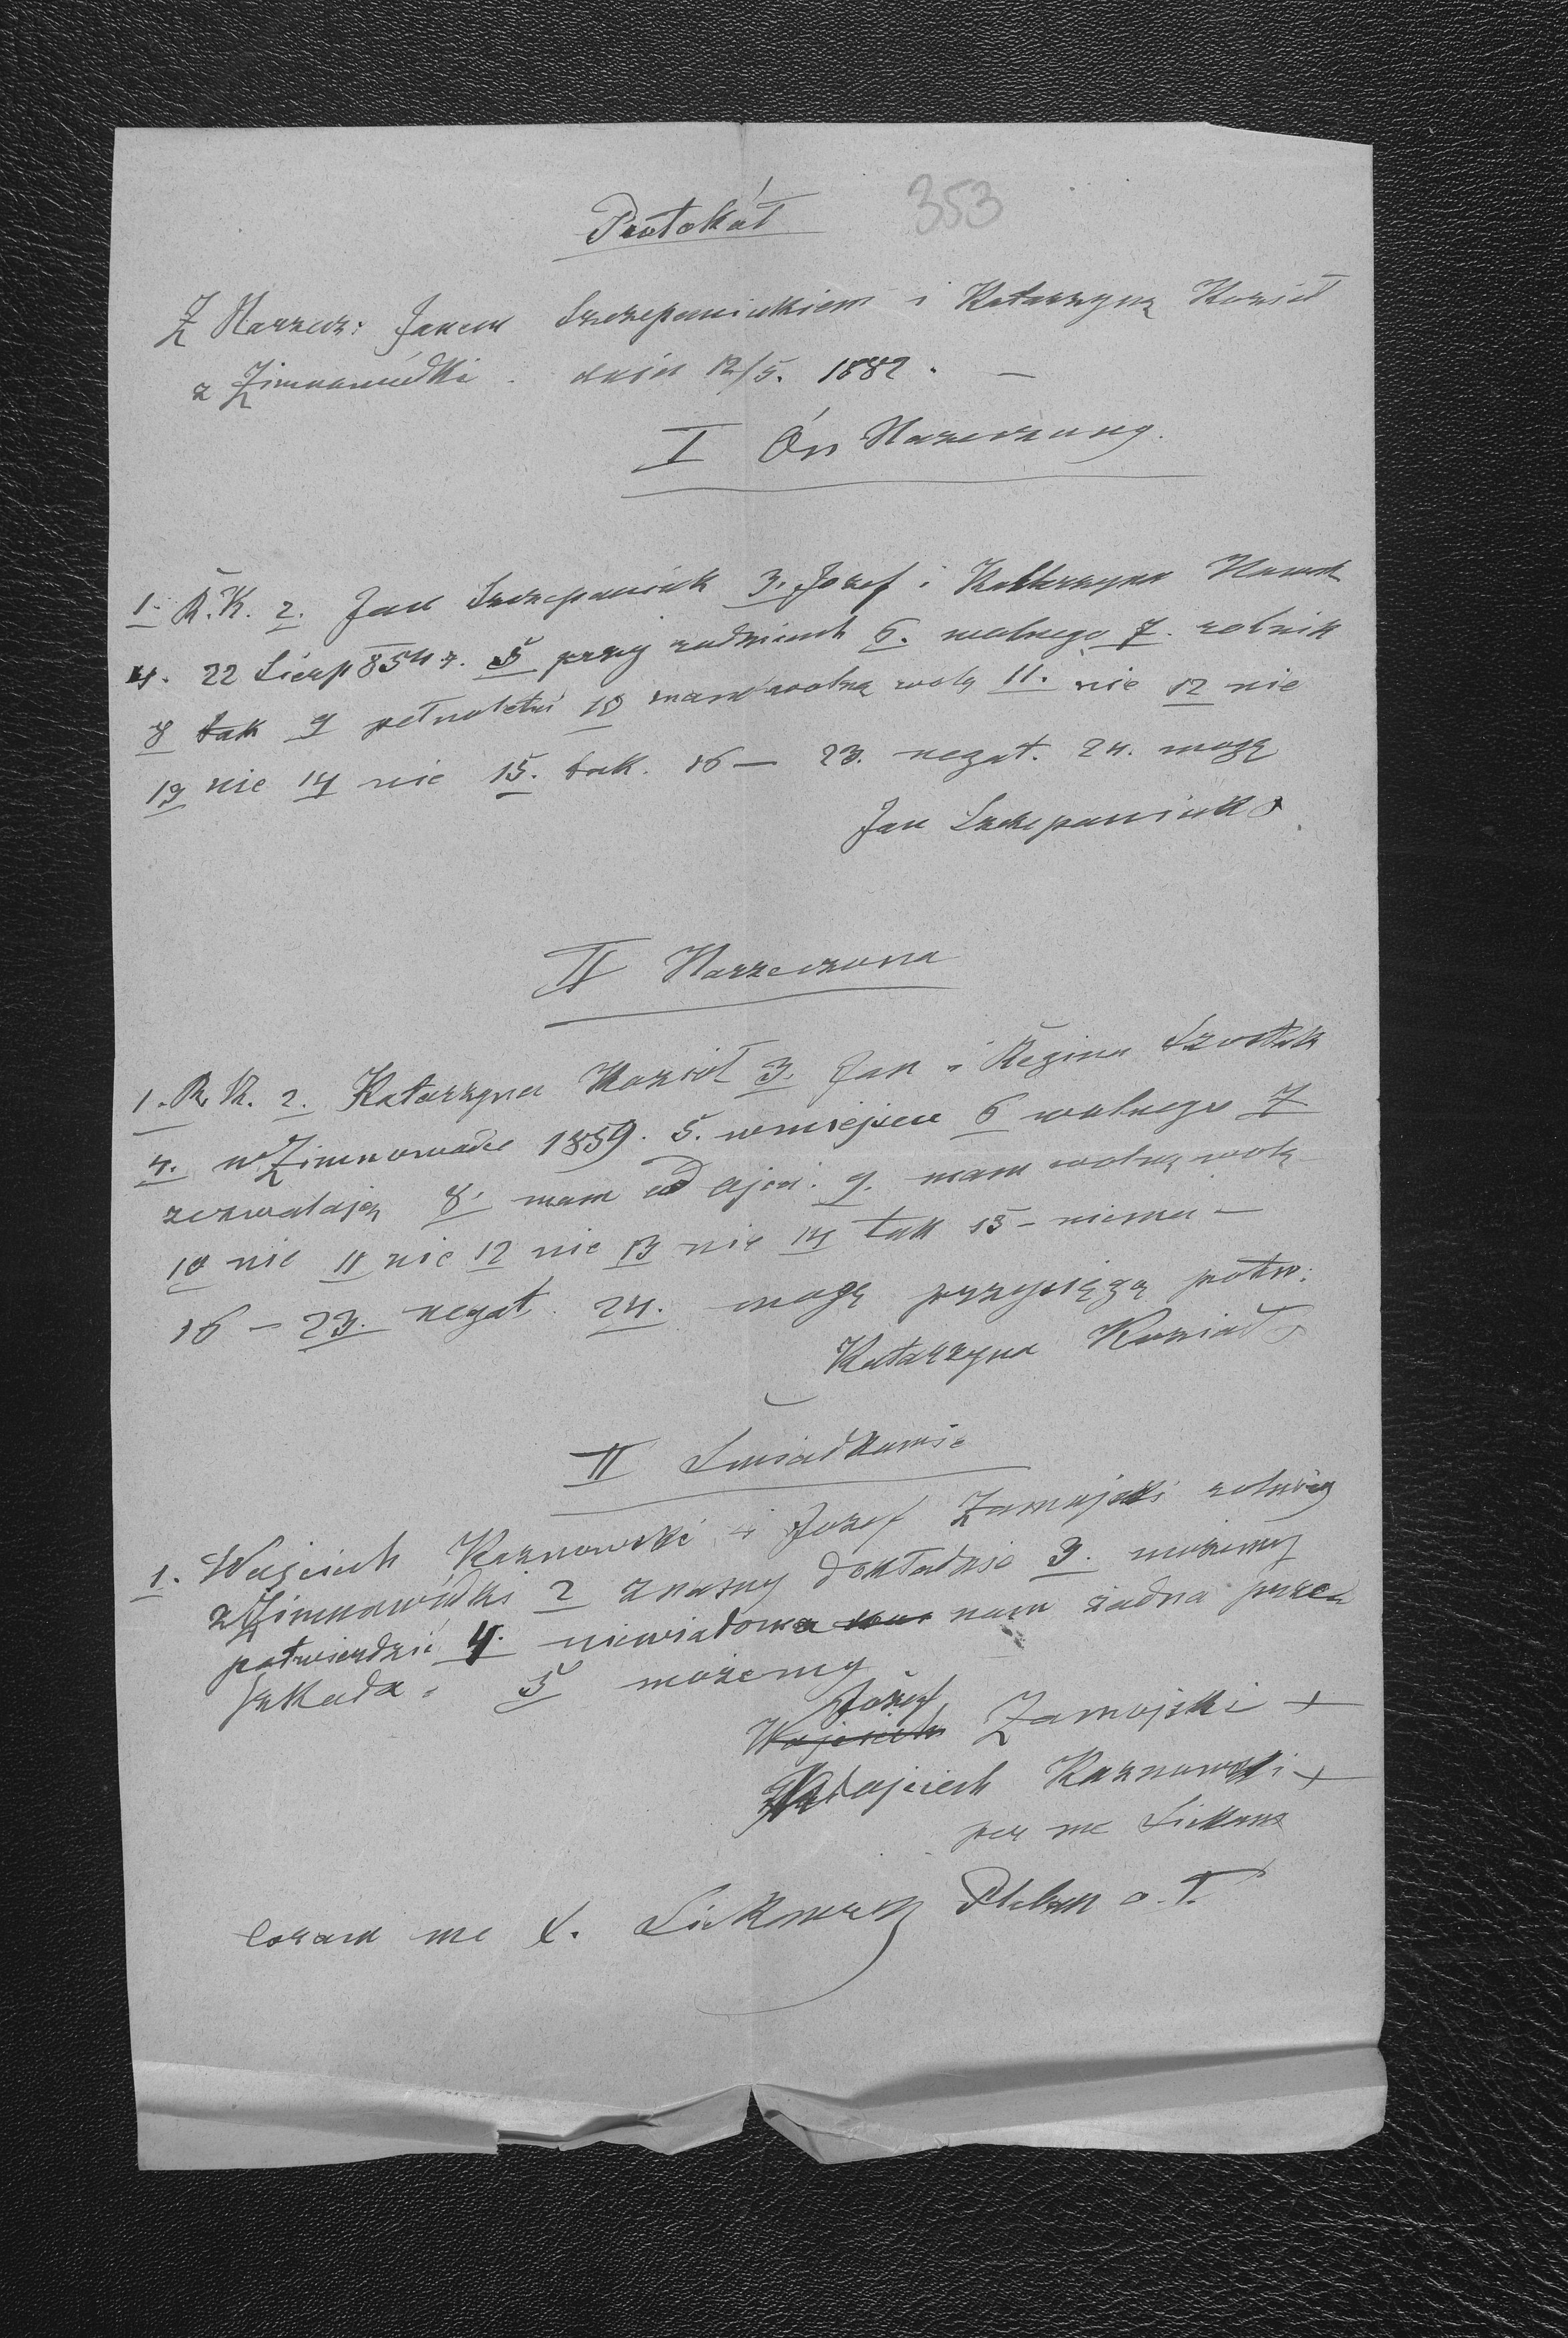 Protokół 353
Z Narzecz: Janem Szczepaniakiem i Katarzyną Kozioł
z Zimnowódki dnia 12/5. 1882. —
I On Narzeczony.
1. R.K. 2. Jan Szczepaniak 3. Jozef i Katarzyna Nawrot
4. 22 Sierp 854 r. 5 przy rodzicach 6. wolnego 7. rolnik
8 tak 9 pełnoletni 10 mam wolną wolę 11. nie 12 nie
13 nie 14 nie 15. tak. 16 — 23. negat. 24. mogę
Jan Szczepaniak
II Narzeczona
1. R.K. 2. Katarzyna Kozioł 3. Jan i Regina
4. w Zimnowodce 1859. 5. w miejscu 6 wolnego 7
zezwalają 8. mam od ojca. 9. mam wolną wolę
10 nie 11 nie 12 nie 13 nie 14 tak 15 – niema –
16 – 23. negat. 24. mogę przysięgą potw:
Katarzyna Kozioł
II Świadkowie
1. Wojciech Kaznowski i Jozef Zamojski rolnicy
z Zimnowódki 2 znamy dokładnie 3. możemy
potwierdzić 4. niewiadoma nam żadna przez
szkoda. 5 możemy
Józef
Wojciech Zamojski +
Wojciech Kaznowski +
per me
coram me X. o. T.